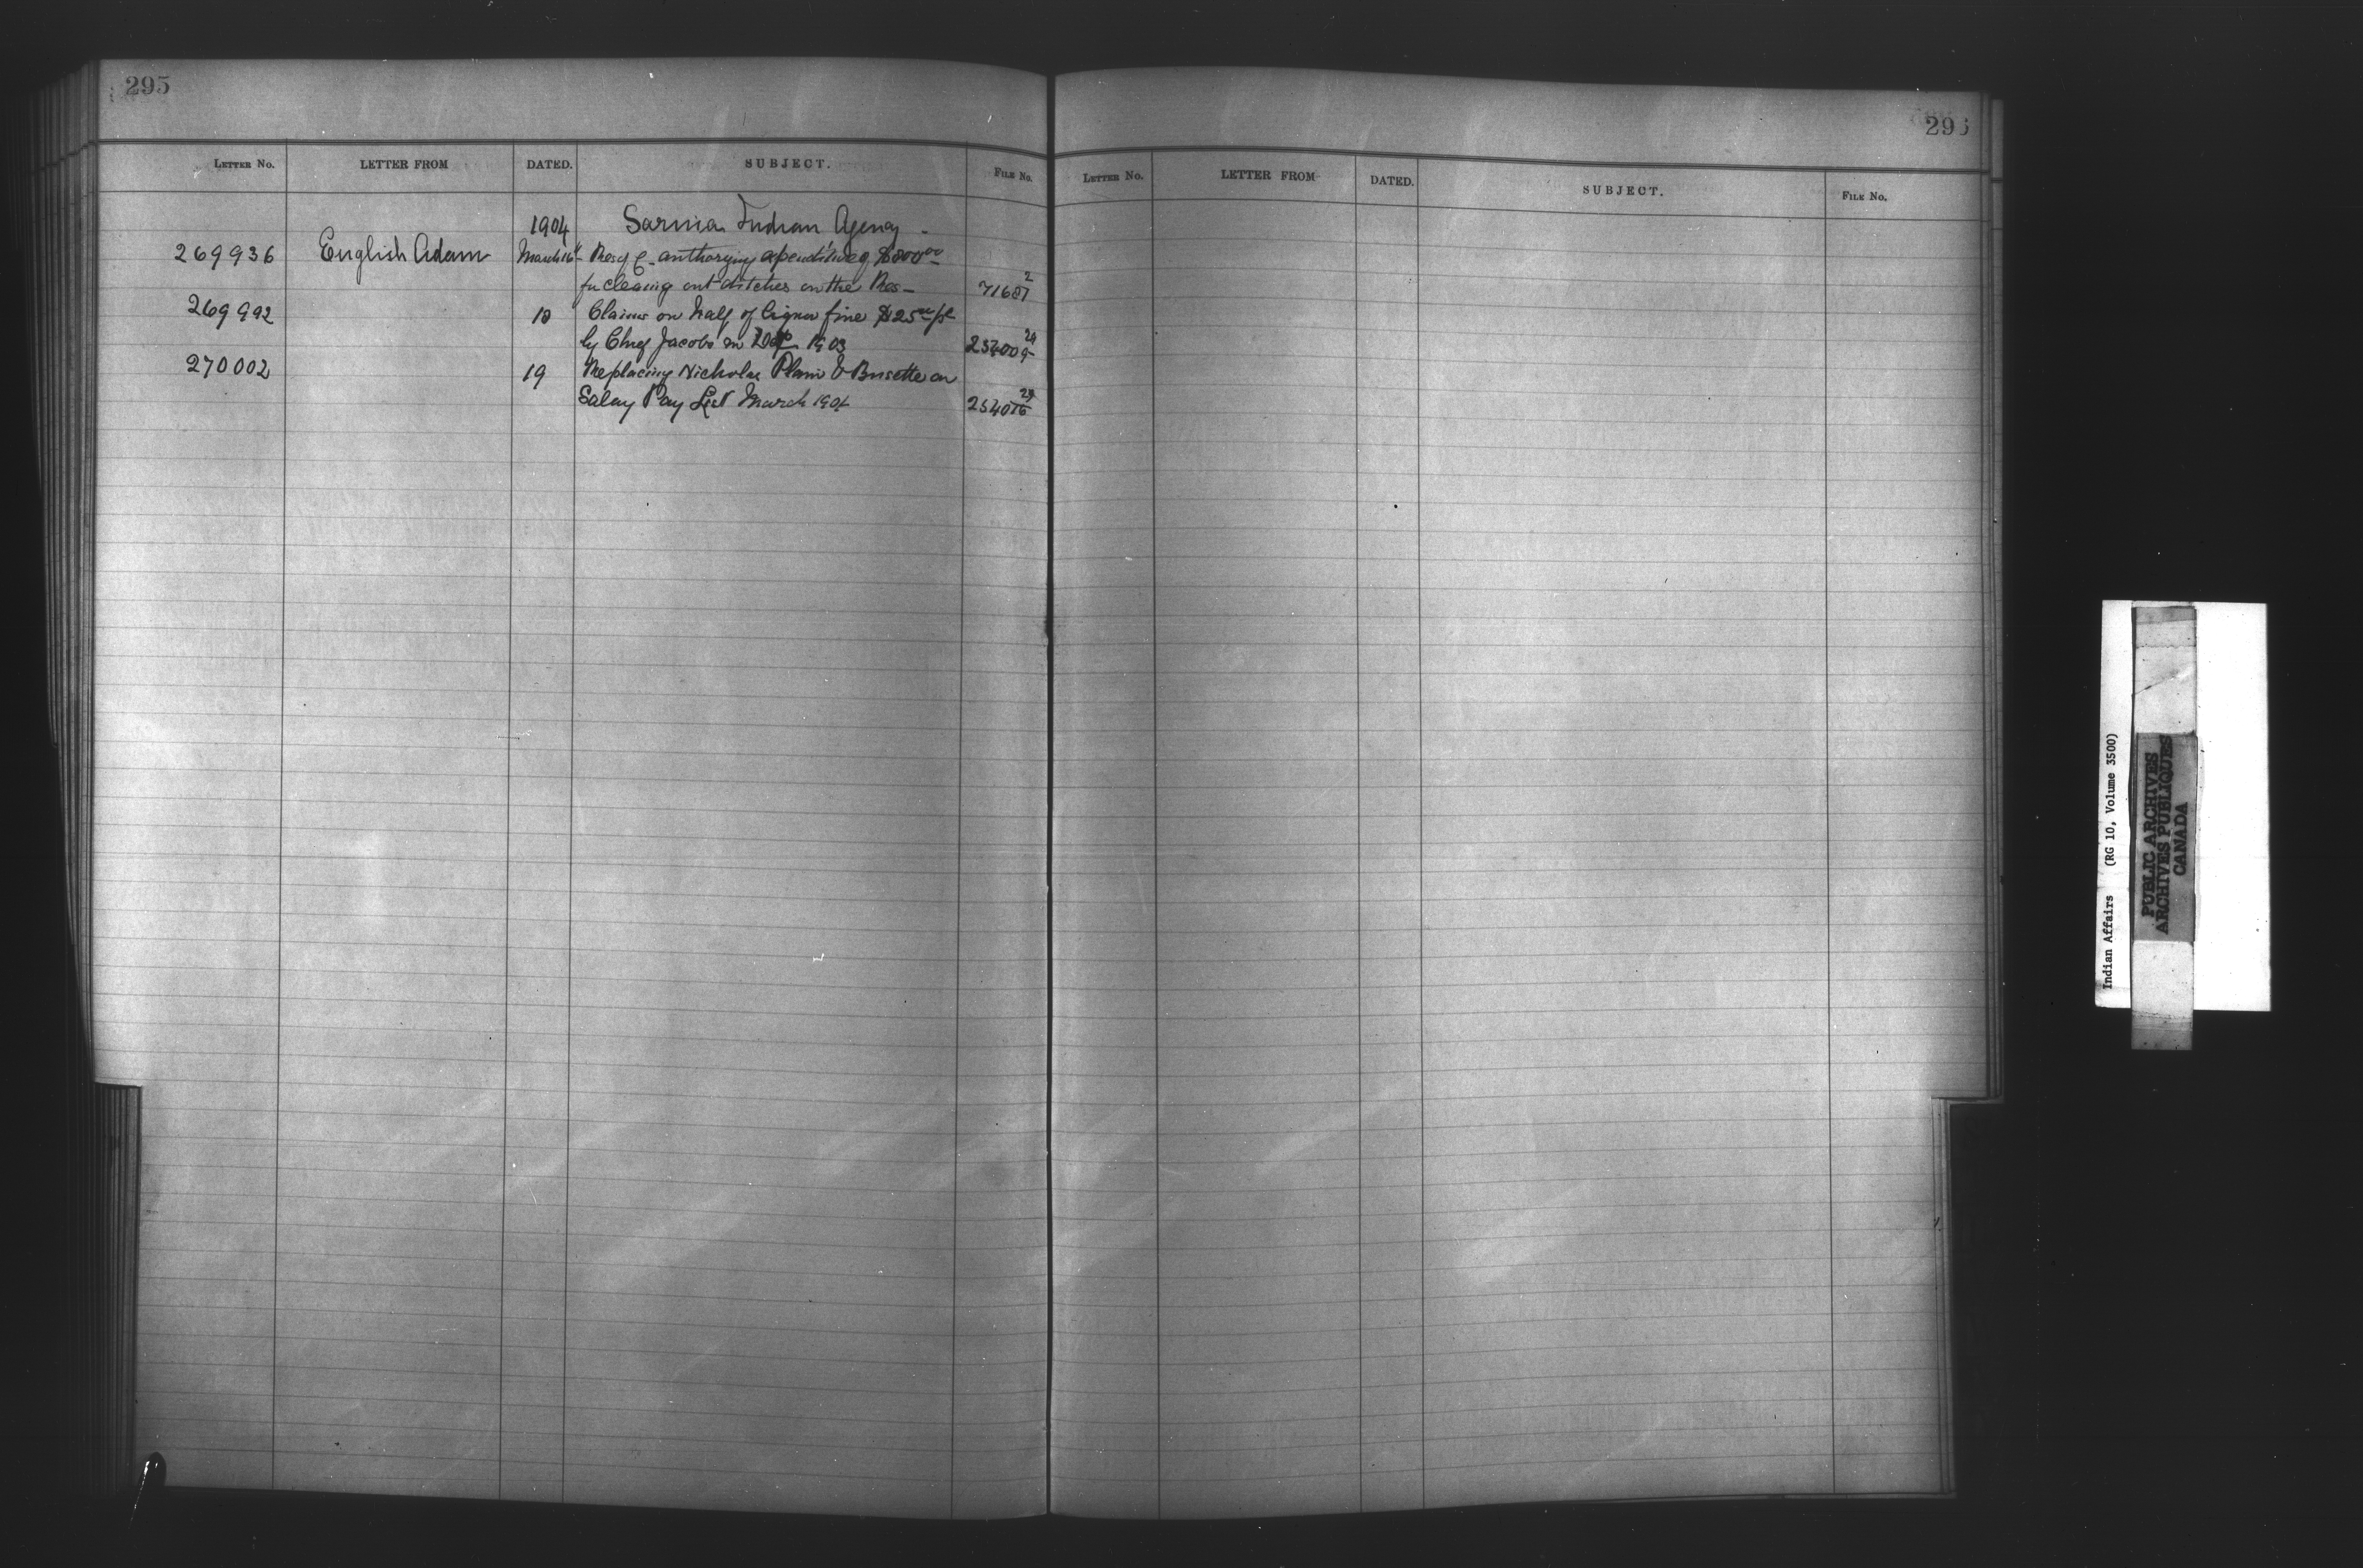 295
LETTER NO. LETTER FROM DATED. SUBJECT. FILE NO.
1904 Sarnia Indian Agency -
269936 English Adam March 16 Res of C. authorizing expenditure of $800.00
for cleaing out ditches on the Res - 71687 2
269992 18 Claims on half of liquor fine $25.00 pd
by Chief Jacobs in 1903 254009 24
270002 19 Replacing Nicholas Plain & Brisette on
Salary Pay List March 1904 254016 24
295
LETTER NO. LETTER FROM DATED. SUBJECT. FILE NO.
Indian Affairs (RG 10, Volume 3500)
PUBLIC ARCHIVES
ARCHIVES PUBLIQUES
CANADA